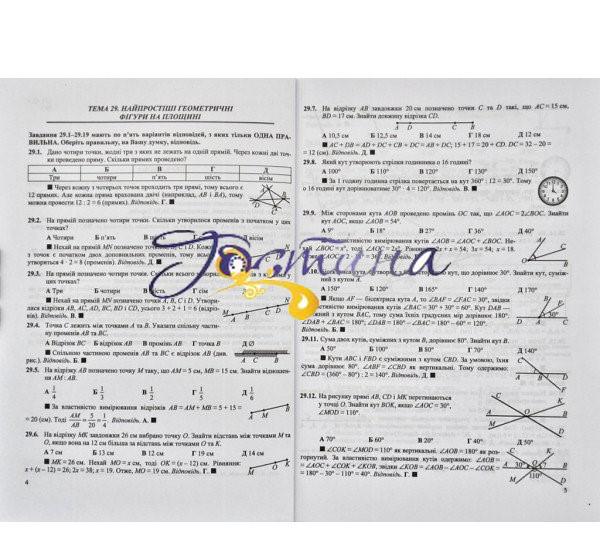 ТЕМА 29. НАЙПРОСТІШІ ГЕОМЕТРИЧНІ
ФІГУРИ НА ПЛОЩИНІ
Завдання 29.1–29.19 мають по п'ять варіантів відповідей, з яких тільки ОДНА ПРА-
ВИЛЬНА. Оберіть правильну, на Вашу думку, відповідь.
29.1. Дано чотири точки, жодні три з яких не лежать на одній прямій. Через кожні дві точ-
ки проведено пряму. Скільки прямих проведено?
А Б В Г Д
Три чотири п'ять шість вісім
■ Через кожну з чотирьох точок проходить три прямі, тому всього є
12 прямих. Але кожна пряма врахована двічі (наприклад, AB і BA), тому
можна провести 12 : 2 = 6 (прямих). Відповідь. Г. ■
29.2. На прямій позначено чотири точки. Скільки утворилося променів з початком у цих
точках?
А Чотири Б П'ять
■ Нехай на прямій MN позначено точки
з точок є початком двох доповняльних променів, тому всього
утворяться 4 · 2 = 8 (променів). Відповідь. Д. ■
29.3. На прямій позначено чотири точки. Скільки всього
точках?
А Три Б чотири В шість Г сім
■ Нехай на прямій MN позначено точки A, B, C і D. Утвори-
лися відрізки AB, AC, AD, BC, BD і CD, усього 3 + 2 + 1 = 6 (відріз-
ків). Відповідь. В. ■
29.4. Точка C лежить між точками A та B. Указати спільну части-
ну променів AB та BC.
А Відрізок BC Б відрізок AB В промінь AB Г точка B Д ∅
■ Спільною частиною променів AB та BC є відрізок AB (див.
рис.). Відповідь. Б. ■
29.5. На відрізку AB позначено точку M таку, що AM = 5 см, MB = 15 см. Знайти віднош-
ення AM : AB.
А 1/4 Б 1/3 В 1/2 Г 1/5 Д 1/6
■ За властивістю вимірювання відрізків AB = AM + MB = 5 + 15 =
= 20 (см). Тоді AM/AB = 5/20 = 1/4. Відповідь. А. ■
29.6. На відрізку MK завдовжки 26 см вибрано точку O. Знайти відстань між точками M та
O, якщо вона на 12 см більша за відстань між точками O та K.
А 7 см Б 13 см В 12 см Г 19 см Д 14 см
■ MK = 26 см. Нехай MO = x см, тоді OK = (x – 12) см. Рівняння:
x + (x – 12) = 26; 2x = 38; x = 19. Отже, MO = 19 см. Відповідь. Г. ■
4
29.7. На відрізку AB завдовжки 20 см позначено точки C та D такі, що AC = 15 см,
BD = 17 см. Знайти довжину відрізка CD.
A D C B
А 10,5 см Б 12,5 см В 14 см Г 18 см Д 12 см
■ AC + DB = AD + DC + CB + DC = AB + DC; 15 + 17 = 20 + CD. DC = 32 – 20 =
= 12 (см). Відповідь. Д. ■
29.8. Який кут утворюють стрілки годинника о 16 годині?
А 100° Б 110° В 120° Г 130° Д 150°
■ За 1 годину годинна стрілка повертається на кут 360° : 12 = 30°. Тому
о 16 годині кут дорівнюватиме 30° · 4 = 120°. Відповідь. В. ■
29.9. Між сторонами кута AOB проведено промінь OC так, що ∠AOC = 2∠BOC. Знайти
кут AOC, якщо ∠AOB = 54°.
А 9° Б 18° В 27° Г 36° Д 40°
вимірювання кутів ∠AOB = ∠AOC + ∠BOC. Не-
хай ∠BOC = x°, тоді ∠AOC = 2x°. Рівняння: 2x + x = 54; 3x = 54; x = 18.
Відповідь. Г. ■
що дорівнює 30°. Знайти кут, суміж-
ний з кутом A.
Б 120° В 165° Г 140° Д 170°
■ Якщо AF — бісектриса кута A, то ∠BAF = ∠FAC = 30°, звідки
вимірювання кутів ∠BAC = 30° + 30° = 60°. Кут DAB —
суміжний з кутом BAC, тому сума їхніх градусних мір дорівнює 180°.
∠DAB + ∠BAC = 180°; ∠DAB = 180° – ∠BAC = 180° – 60° = 120°.
Відповідь. Б. ■
29.11. Сума двох кутів, суміжних з кутом B, дорівнює 80°. Знайти кут B.
А 100° Б 120° В 80° Г 70° Д 140°
■ Кути ABC і FBD є суміжними з кутом CBD. За умовою, їхня
сума дорівнює 80°. ∠ABF = ∠CBD як вертикальні. Тому одержимо:
∠CBD = (360° – 80°) : 2 = 140°. Відповідь. Д. ■
29.12. На рисунку прямі AB, CD і MK перетинаються
у точці O. Знайти кут BOK, якщо ∠AOC = 30°,
∠MOD = 110°.
А 70° Б 60° В 110° Г 40° Д 50°
■ ∠COK = ∠MOD = 110° як вертикальні. ∠AOB = 180° як роз-
горнутий. За властивістю вимірювання кутів одержимо: ∠AOB =
= ∠AOC + ∠COK + ∠KOB, звідки ∠KOB = ∠AOB – ∠AOC – ∠COK =
= 180° – 30° – 110° = 40°. Відповідь. Г. ■
5
Гостинка